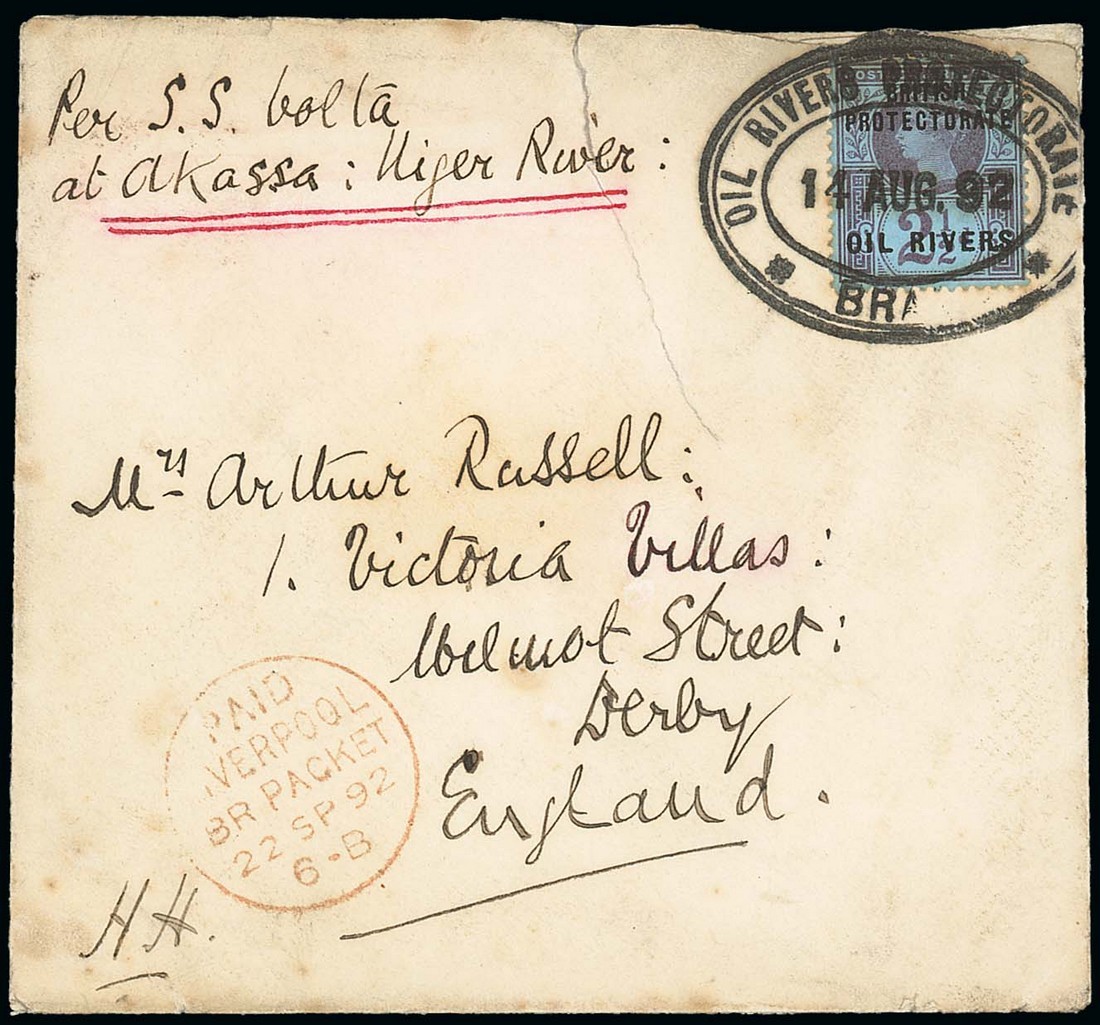 Per S.S. Volta
at Akassa: Niger River:
OIL RIVERS PROTECTORATE
BRITISH
PROTECTORATE
14 AUG. 92
OIL RIVERS
2½
BRA
Mrs Arthur Russell:
1. Victoria Villas:
Wilmot Street:
Derby
England.
PAID
IVERPOOL
BR PACKET
22 SP 92
6-B
HH.